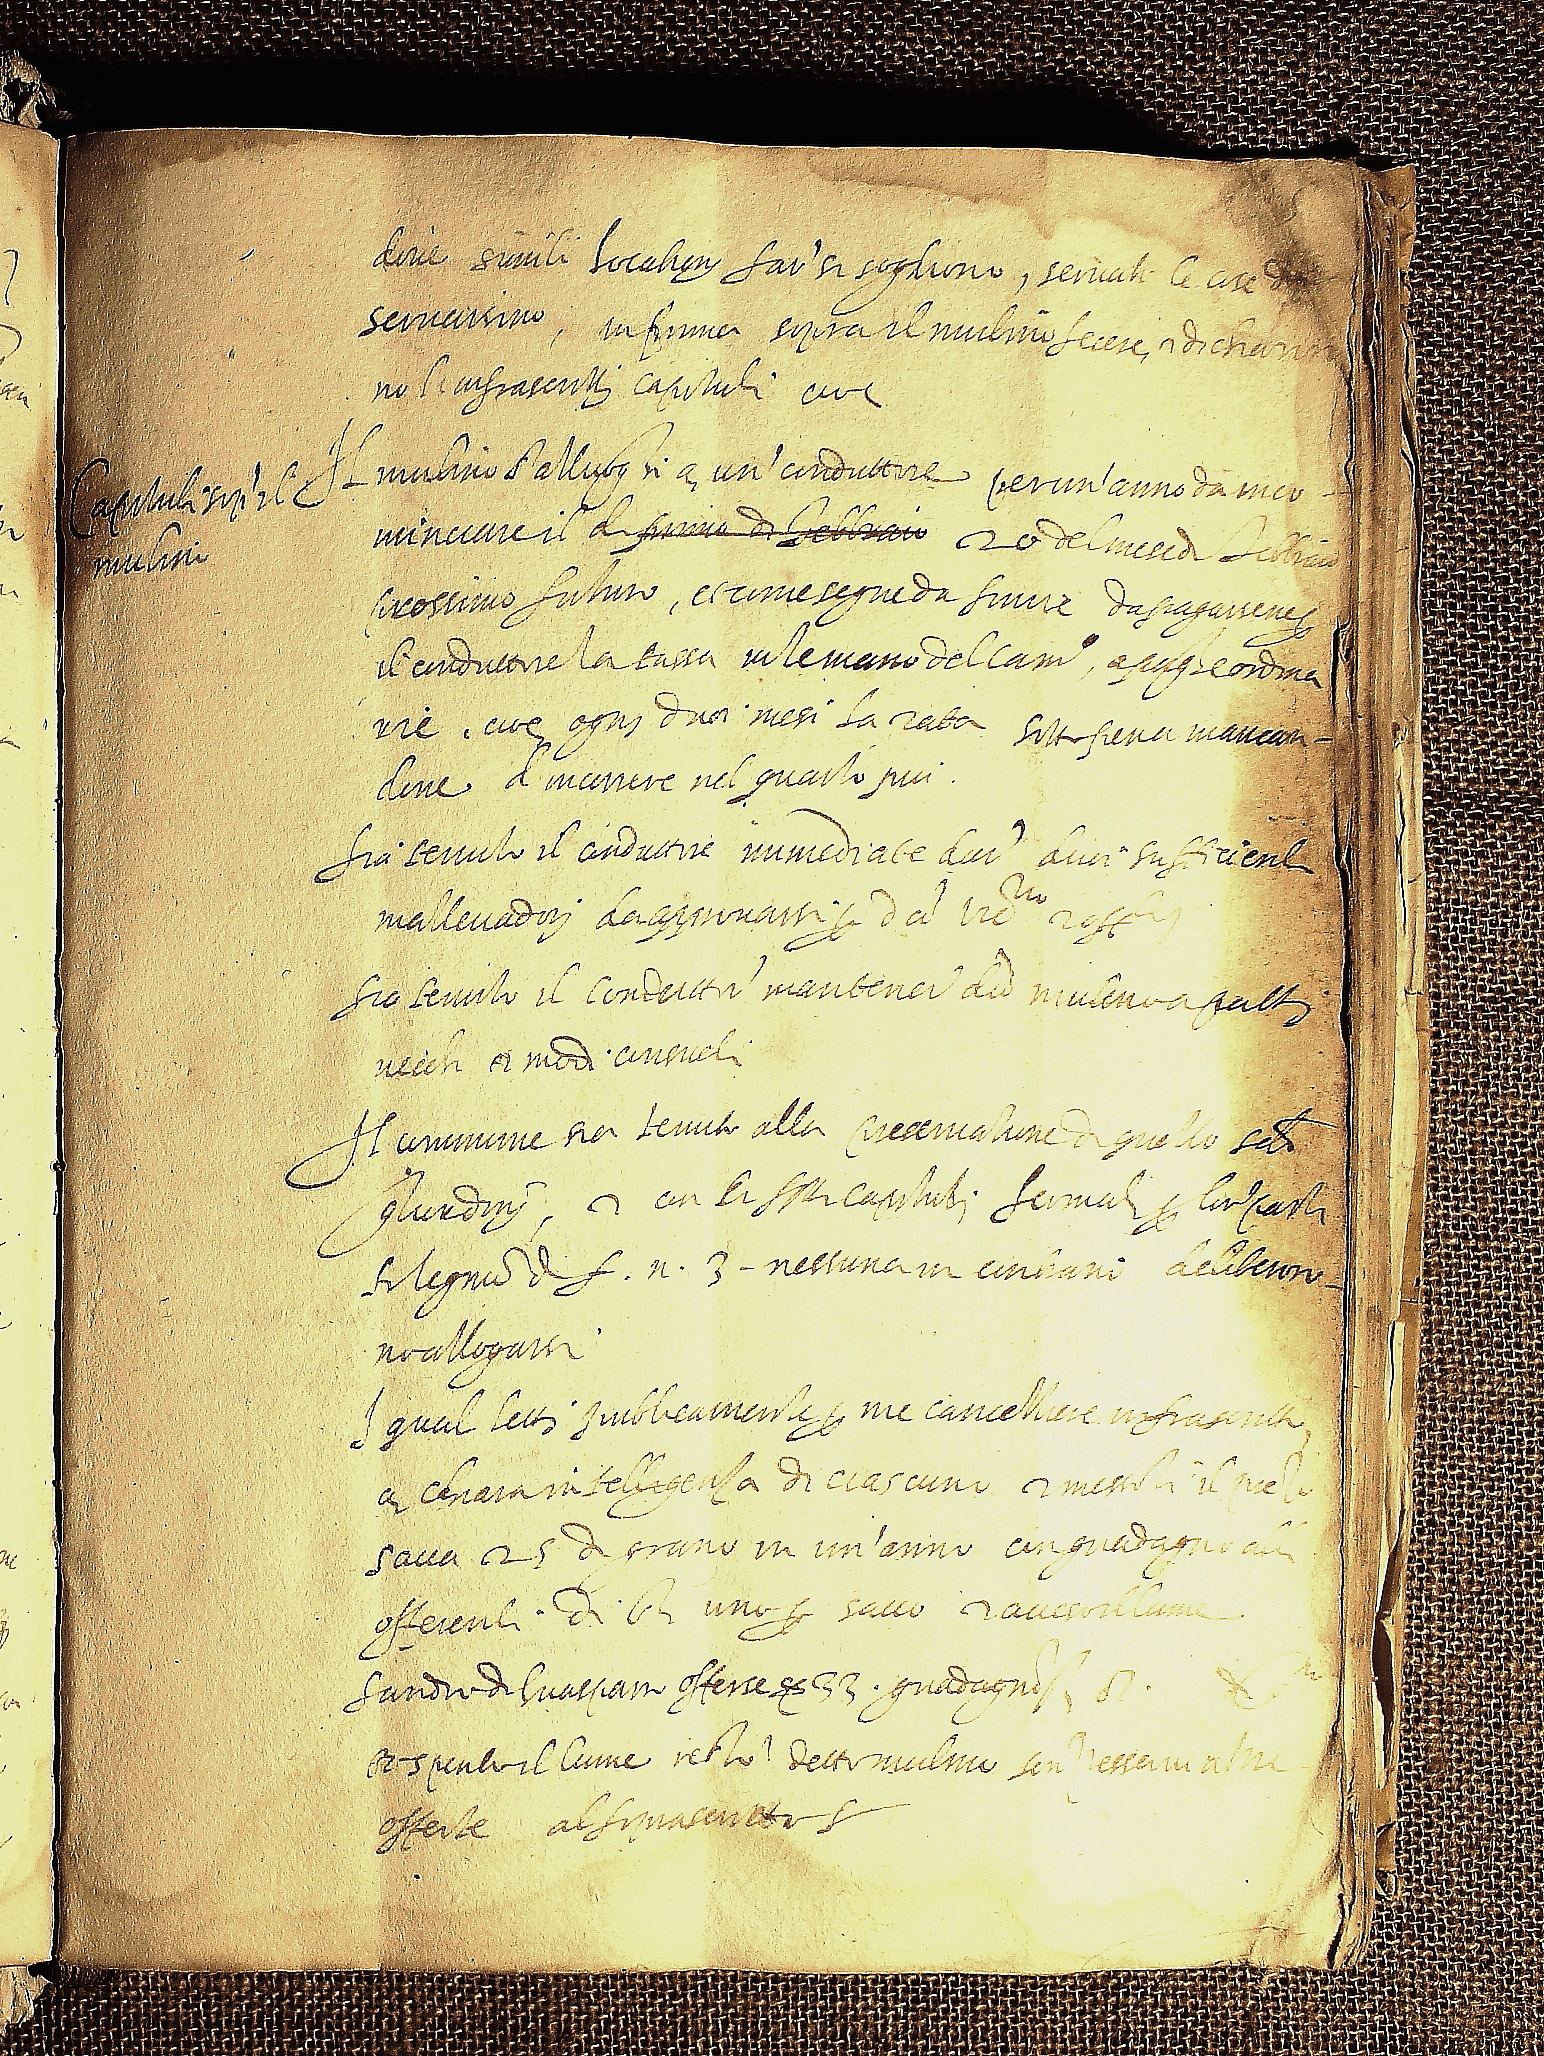 dove simili locationi far' si sogliono, servate le cose da
servarsino, in prima sopra il mulino fecero, et dichiaro
no l'infrascritti capituli cioè
Capituli sop'il
mulino
Il mulino s'alluoghi a un' conduttore per un' anno da inco-
minciare il dì primo di Febbraio 20 del mese di Febbraio
prossimo futuro, et come segue da finire da pagarsene p
il conduttore la tassa in le mano del Cam.o, a paghe ordina
rie, cioè ogni duoi mesi la rata sotto pena mancan-
done d'incorrere nel quarto più.
Sia tenuto il conduttore immediate dar' duoi sufficienti
mallevadori da approvarsi p da'
Sia tenuto il conduttor' mantener' d.o mulino a patti
vecchi et modi consueti
Il commune sia tenuto alla preservatione di quello
et con li capituli fermati p lor' parti
di f. n. 3 - nessuna in contrario deliberor-
no allogarsi
I quali letti pubblicamente p me cancelliere infrascritto
a chiara intelligenza di ciascuno et messoli il
sacca 25 di grano in un' anno con guadagno alli
offerenti di uno p sacco et acceso il lume
Sandro di Guasparri offerse 33. guadagnò
et spento il lume restò detto mulino sen' esservi altre
offerte al soprascritto S